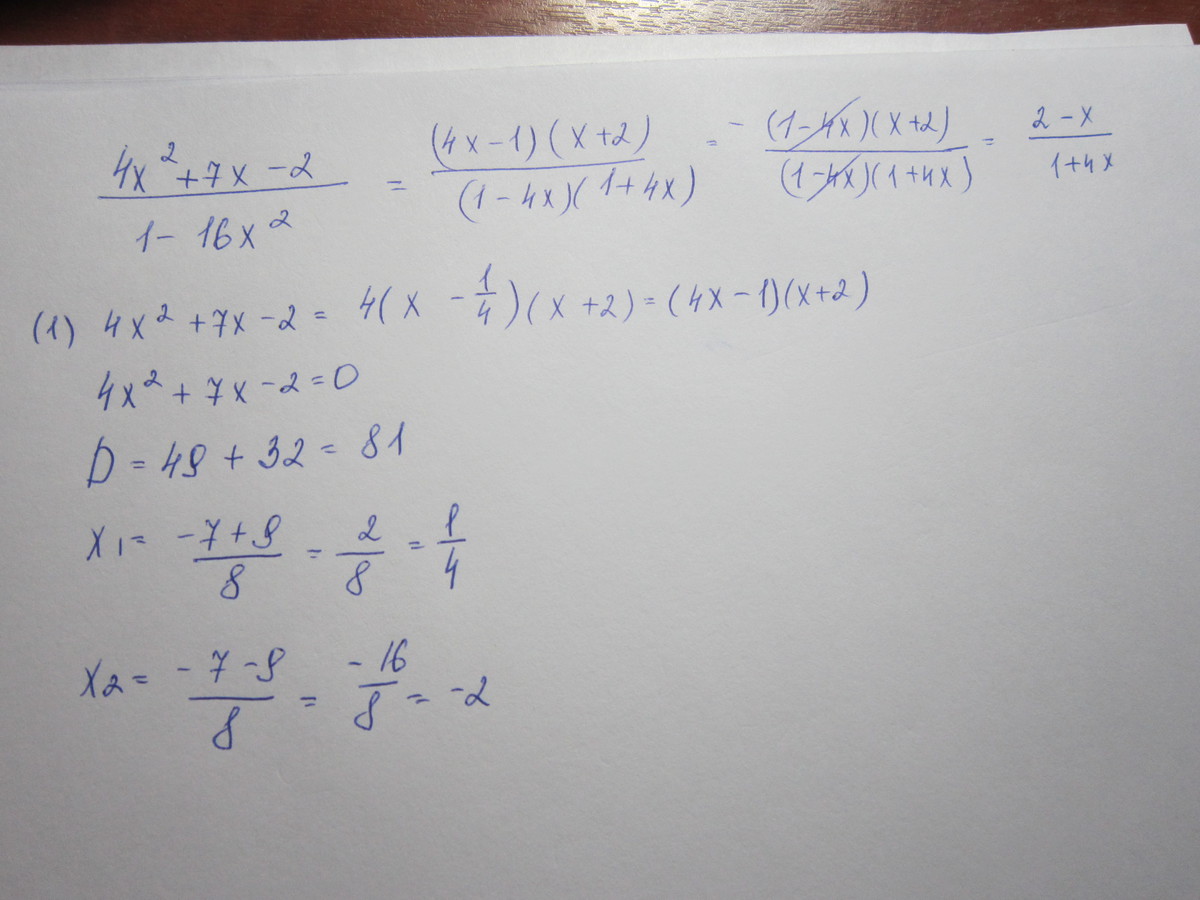 (4x² + 7x - 2)/(1 - 16x²) = ((4x - 1)(x + 2))/((1 - 4x)(1 + 4x)) = - ((1 - 4x)(x + 2))/((1 - 4x)(1 + 4x)) = (2 - x)/(1 + 4x)
(1) 4x² + 7x - 2 = 4(x - 1/4)(x + 2) = (4x - 1)(x + 2)
4x² + 7x - 2 = 0
D = 49 + 32 = 81
x₁ = (-7 + 9)/8 = 2/8 = 1/4
x₂ = (-7 - 9)/8 = -16/8 = -2